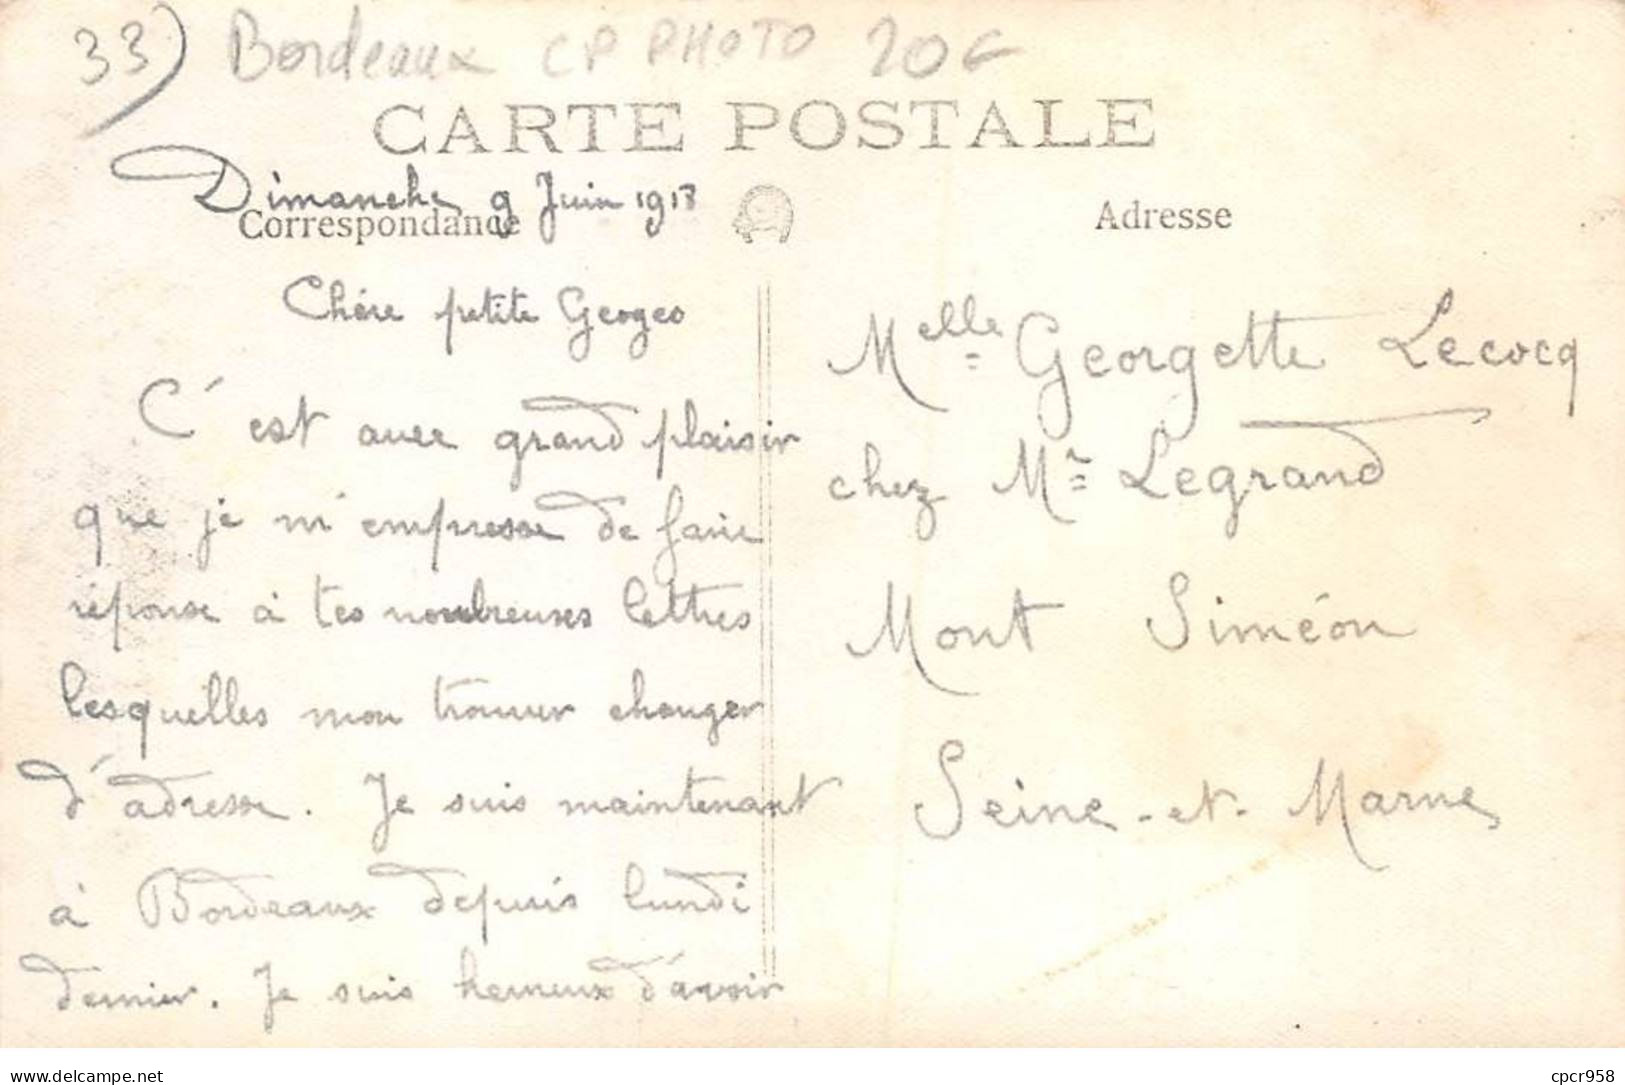 33) Bordeaux CP PHOTO 20€
CARTE POSTALE
Dimanche 9 Juin 1918
Correspondance
Chère petite Georges
C'est avec grand plaisir
que je m'empresse de faire
réponse à tes nombreuses lettres
lesquelles mon trouver changer
d'adresse. Je suis maintenant
à Bordeaux depuis lundi
dernier. Je suis heureux d'avoir
Adresse
Melle Georgette Lecocq
chez Mr Legrand
Mont Siméon
Seine-et-Marne
delcampe.net
cpcr958